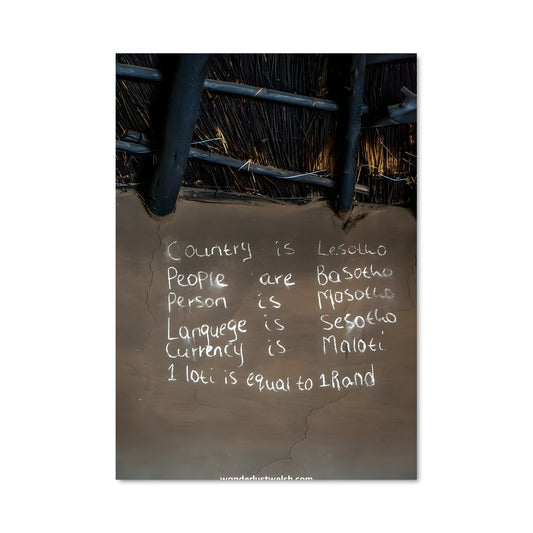 Country is Lesotho
People are Basotho
Person is Mosotho
Languege is Sesotho
Currency is Maloti
1 loti is equal to 1Rand
wanderlustwelsh.com